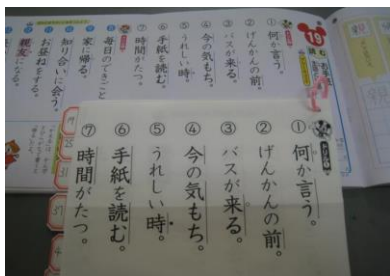 19
読む
① 何か言う。
② げんかんの前。
③ バスが来る。
④ 今の気もち。
⑤ うれしい時。
⑥ 手紙を読む。
⑦ 時間がたつ。
毎日のできごと
家に帰る。
知り合いに会う。
お昼ねをする。
親友になる。
① 何か言う。
② げんかんの前。
③ バスが来る。
④ 今の気もち。
⑤ うれしい時。
⑥ 手紙を読む。
⑦ 時間がたつ。
19
25
31
37